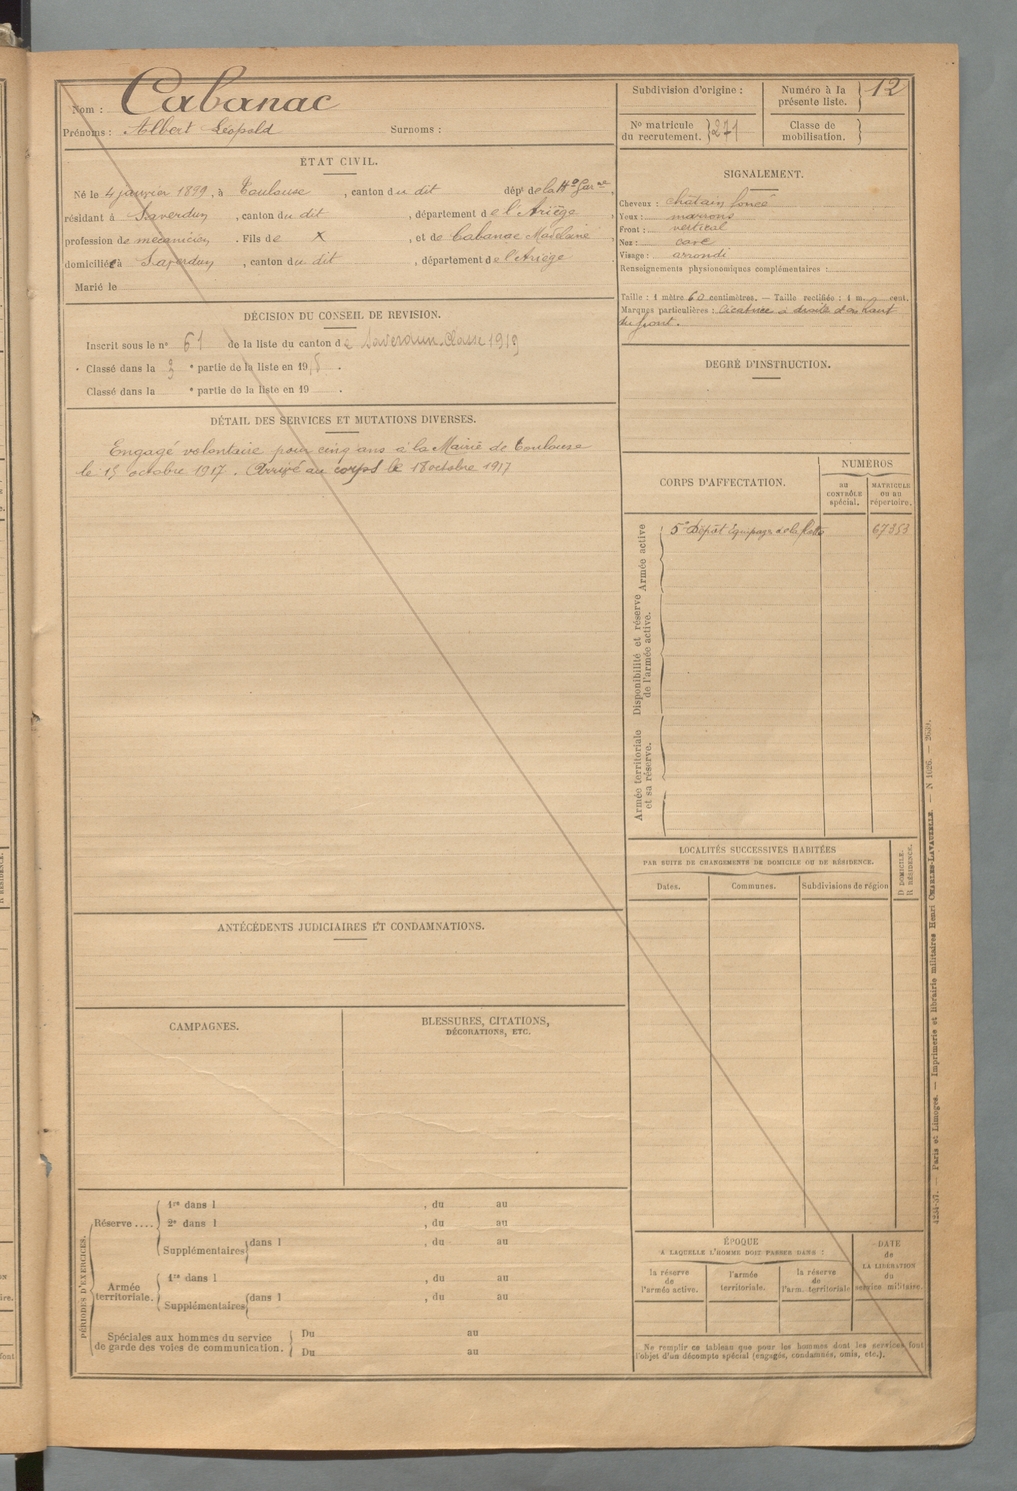 Nom : Cabanac
Prénoms : Albert Léopold Surnoms :
ÉTAT CIVIL.
Né le 4 janvier 1899, à Toulouse, canton du dit dépt de la Hte Garne,
résidant à Saverdun, canton du dit, département de l'Ariège,
profession de mécanicien. Fils de X, et de Cabanac Madeleine
domicilié à Saverdun, canton du dit, département de l'Ariège
Marié le
DÉCISION DU CONSEIL DE REVISION.
Inscrit sous le n° 61 de la liste du canton de Saverdun. Classe 1919
Classé dans la 3 e partie de la liste en 1918.
Classé dans la e partie de la liste en 19 .
DÉTAIL DES SERVICES ET MUTATIONS DIVERSES.
Engagé volontaire pour cinq ans à la Mairie de Toulouse
le 15 octobre 1917. Arrivé au corps le 18 octobre 1917
ANTÉCÉDENTS JUDICIAIRES ET CONDAMNATIONS.
CAMPAGNES.
BLESSURES, CITATIONS,
DÉCORATIONS, ETC.
PÉRIODES D'EXERCICES.
Réserve....
1re dans l , du au
2e dans l , du au
Supplémentaires dans l , du au
Armée
territoriale.
1re dans l , du au
Supplémentaires dans l , du au
Spéciales aux hommes du service
de garde des voies de communication.
Du au
Du au
Subdivision d'origine :
Numéro à la
présente liste. 12
N° matricule
du recrutement. 271
Classe de
mobilisation.
SIGNALEMENT.
Cheveux : châtain foncé
Yeux : marrons
Front : vertical
Nez : cave
Visage : arrondi
Renseignements physionomiques complémentaires :
Taille : 1 mètre 60 centimètres. — Taille rectifiée : 1 m. cent.
Marques particulières : Cicatrice à droite d'en haut
du front.
DEGRÉ D'INSTRUCTION.
CORPS D'AFFECTATION.
NUMÉROS
au
CONTRÔLE
spécial.
MATRICULE
ou au
répertoire.
Armée active
5e Dépôt Equipages de la flotte 67353
Disponibilité et réserve
de l'armée active.
Armée territoriale
et sa réserve.
LOCALITÉS SUCCESSIVES HABITÉES
PAR SUITE DE CHANGEMENTS DE DOMICILE OU DE RÉSIDENCE.
Dates. Communes. Subdivisions de région
D DOMICILE.
R RÉSIDENCE.
ÉPOQUE
A LAQUELLE L'HOMME DOIT PASSER DANS :
la réserve
de
l'armée active.
l'armée
territoriale.
la réserve
de
l'arm. territoriale
DATE
de
LA LIBÉRATION
du
service militaire.
Ne remplir ce tableau que pour les hommes dont les services font
l'objet d'un décompte spécial (engagés, condamnés, omis, etc.).
4234-37. — Paris et Limoges. — Imprimerie et librairie militaires Henri CHARLES-LAVAUZELLE. — N 1026. — 2639.